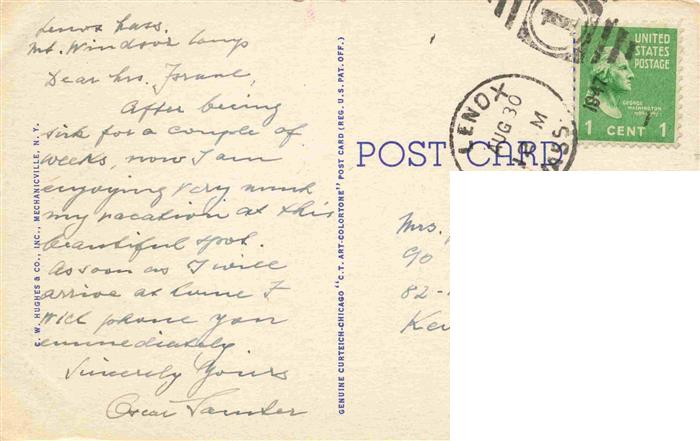 Lenox Mass.
Mt. Windsor Camp
Dear Mrs.
After being
sick for a couple of
weeks, now I am
enjoying very much
my vacation at this
beautiful spot.
As soon as I will
arrive at home I
will phone you
emmediately
Sincerely Yours
Oscar
C. W. HUGHES & CO., INC., MECHANICVILLE, N. Y.
GENUINE CURTEICH-CHICAGO "C. T. ART-COLORTONE" POST CARD (REG. U. S. PAT. OFF.)
POST CARD
LENOX
AUG 30
M
MASS.
1941
UNITED
STATES
POSTAGE
GEORGE
WASHINGTON
1 CENT 1
Mrs.
90
82-
Kew